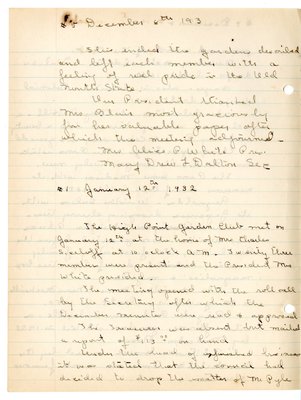 December 6th 193
This ended the gardens described
and left each member with a
feeling of real pride in the Old
North State.
Our President thanked
Mrs. Blair most graciously
for her valuable paper after
which the meeting adjourned.
Mrs White Pres.
Mary Drew L Dalton Sec
January 12th 1932
The High Point Garden Club met on
January 12th at the home of Mrs Charles
at 10 o'clock A.M. Twenty three
members were present and the President Mrs
White presided.
The meeting opened with the roll call
by the Secretary after which the
December minutes were read & approved
The Treasurer was absent but mailed
a report of $113 on hand
Under the head of unfinished business
it was stated that the council had
decided to drop the matter of Mr Pyle